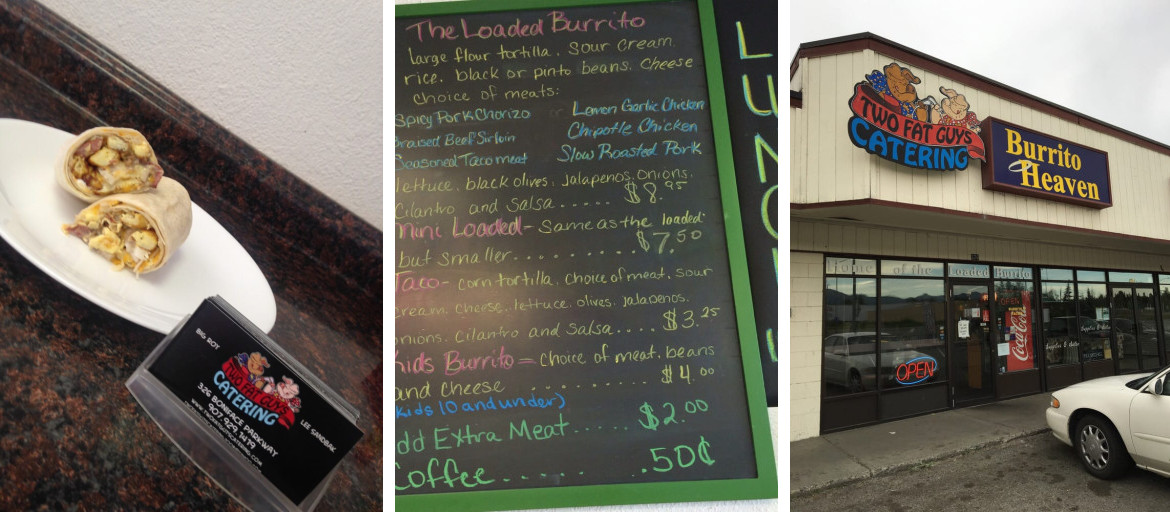 BIG ROY
TWO FAT GUYS
CATERING
LEE SANDBAK
326 BONIFACE PARKWAY
907 929 1479
The Loaded Burrito
large flour tortilla. Sour cream.
rice. black or pinto beans. Cheese
choice of meats:
Spicy Pork Chorizo
Lemon Garlic Chicken
Braised Beef Sirloin
Chipotle Chicken
Seasoned Taco meat
Slow Roasted Pork
lettuce. black olives. Jalapenos. onions.
Cilantro and Salsa ..... $8.95
mini Loaded - Same as the loaded
but smaller ......... $7.50
Taco - corn tortilla. choice of meat. sour
cream. cheese. lettuce. olives. jalapenos.
onions. cilantro and Salsa .... $3.25
Kids Burrito = choice of meat. beans
and cheese ......... $4.00
(kids 10 and under)
dd Extra Meat ..... $2.00
Coffee ..... .50¢
LUNCH
TWO FAT GUYS
CATERING
Burrito
Heaven
Home of the Loaded Burrito
OPEN
OPEN
Coca-Cola